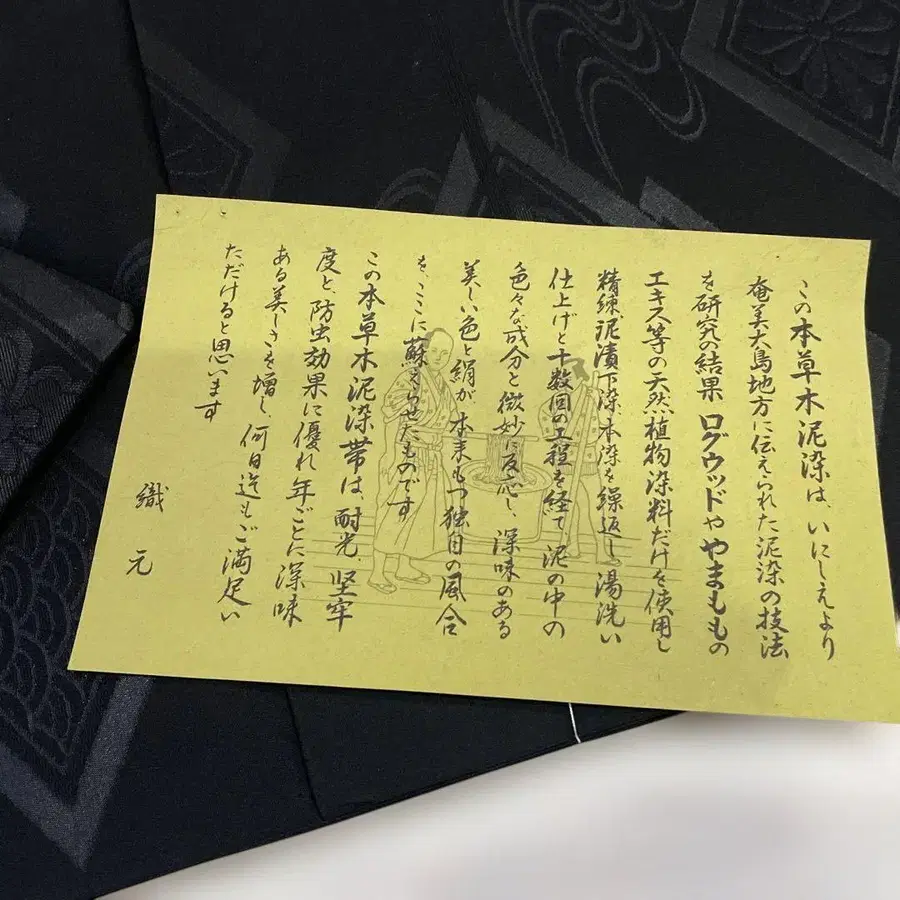 この本草木泥染は、いにしえより
奄美大島地方に伝えられた泥染の技法
を研究の結果ログウッドややまももの
エキス等の天然植物染料だけを使用し
精練、泥漬、下染、本染を繰返し、湯洗い
仕上げと十数回の工程を経て、泥の中の
色々な成分と微妙に反応し、深味のある
美しい色と絹が、本来もつ独自の風合
を、ここに蘇えらせたものです
この本草木泥染帯は、耐光、堅牢
度と、防虫効果に優れ、年ごとに深味
ある美しさを増し、何日迄もご満足い
ただけると思います
織元